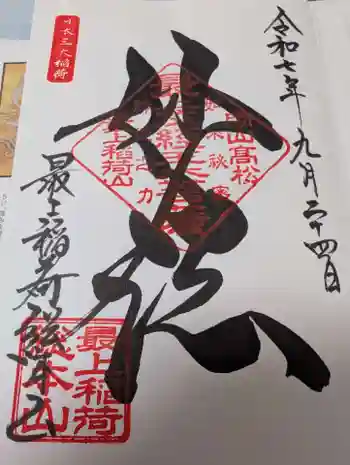 令和七年九月二十四日
日本三大稲荷
妙法
最上稲荷山
最上稲荷総本山
最上稲荷
総本山